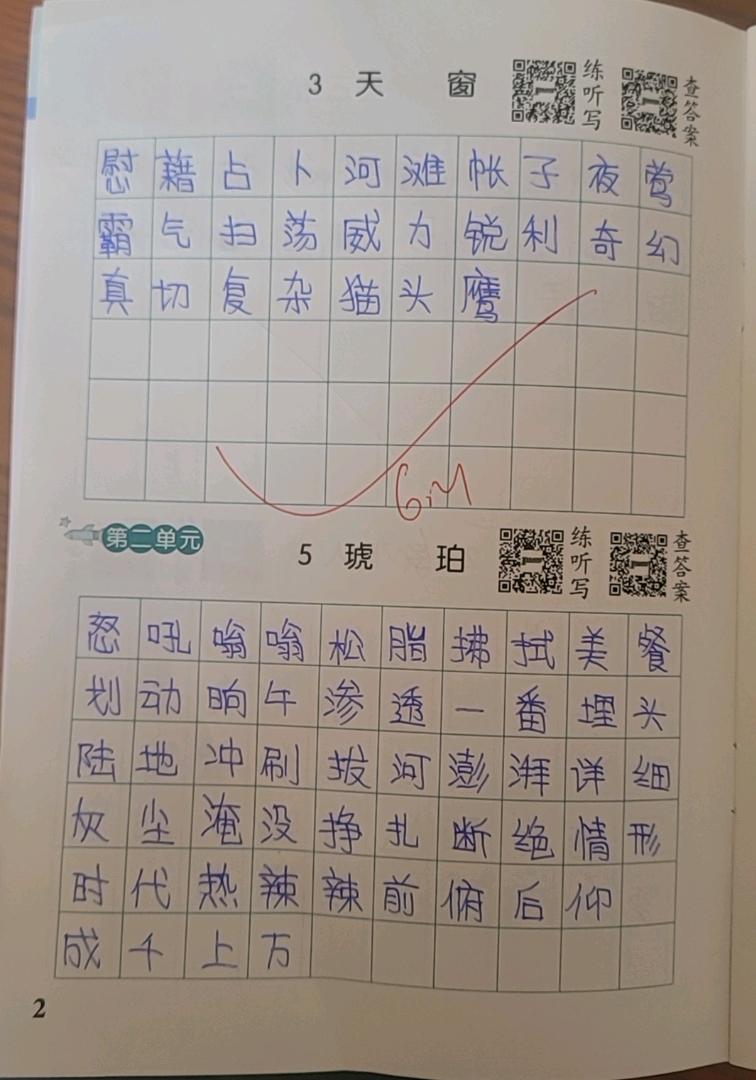 3 天 窗 练听写 查答案
慰藉占卜河滩帐子夜莺
霸气扫荡威力锐利奇幻
真切复杂猫头鹰
6.14
第二单元
5 琥 珀 练听写 查答案
怒吼嗡嗡松脂拂拭美餐
划动晌午渗透一番埋头
陆地冲刷拔河澎湃详细
灰尘淹没挣扎断绝情形
时代热辣辣前俯后仰
成千上万
2